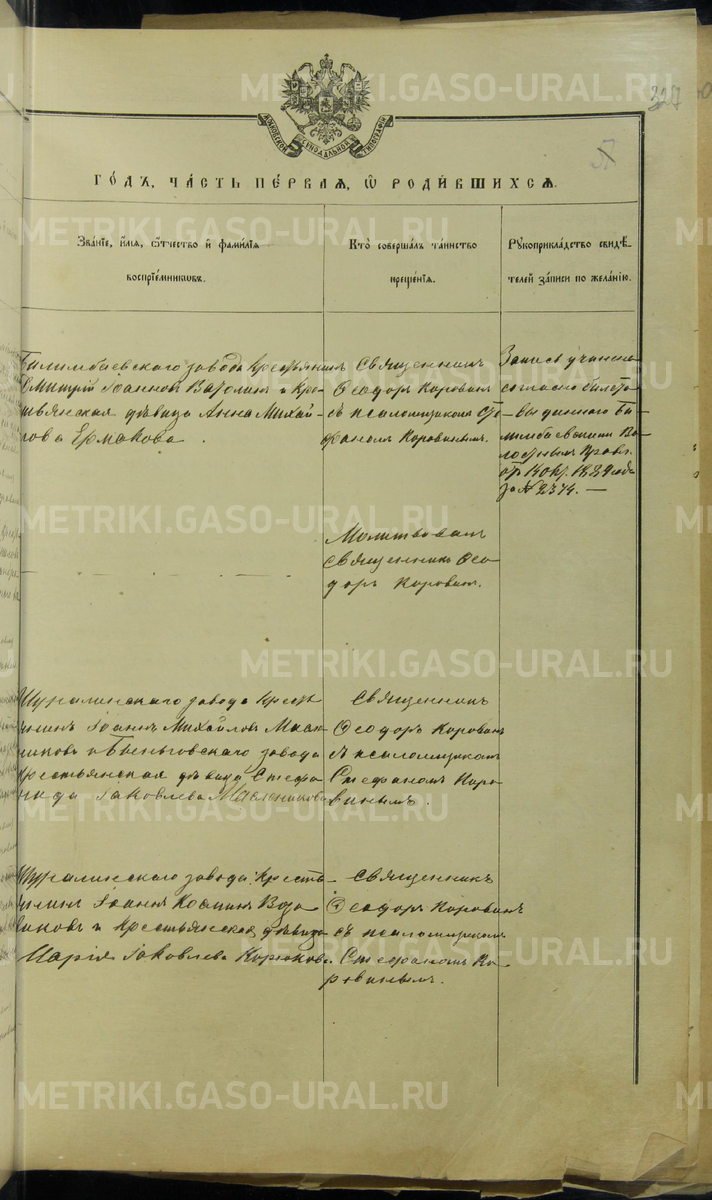 327
МОСКОВСКОЙ СѴНОДАЛЬНОЙ ТИПОГРАФІИ
ГОДЪ, ЧАСТЬ ПЕРВАЯ, Ѿ РОДИВШИХСЯ.
Званіе, имя, отчество и фамилія
воспріемниковъ.
Кто совершалъ таинство
крещенія.
Рукоприкладство свидѣ-
телей записи по желанію.
Билимбаевскаго завода крестьянинъ
Димитрій Іоанновъ и кре-
стьянская дѣвица Анна Михай-
лова Ермакова.
Священникъ
Ѳеодоръ Коровинъ
съ псаломщикомъ Сте-
фаномъ Коровинымъ.
Запись учинена
согласно билета
выданнаго Би-
лимбаевскимъ Во-
лостнымъ Правл.
отъ окт. года
за № 2374. —
Молитвовалъ
священникъ Ѳео-
доръ Коровинъ.
Шуралинскаго завода кресть-
янинъ Іоаннъ Михайловъ Масле-
никовъ и Быньговскаго завода
крестьянская дѣвица Стефа-
нида Іаковлева Масленикова
Священникъ
Ѳеодоръ Коровинъ
съ псаломщикомъ
Стефаномъ Коро-
винымъ.
Шуралинскаго завода кресть-
янинъ Іоаннъ Козмин
и крестьянская дѣвица
Марія Іаковлева Корюкова.
Священникъ
Ѳеодоръ Коровинъ
съ псаломщикомъ
Стефаномъ Ко-
ровинымъ.
METRIKI.GASO-URAL.RU